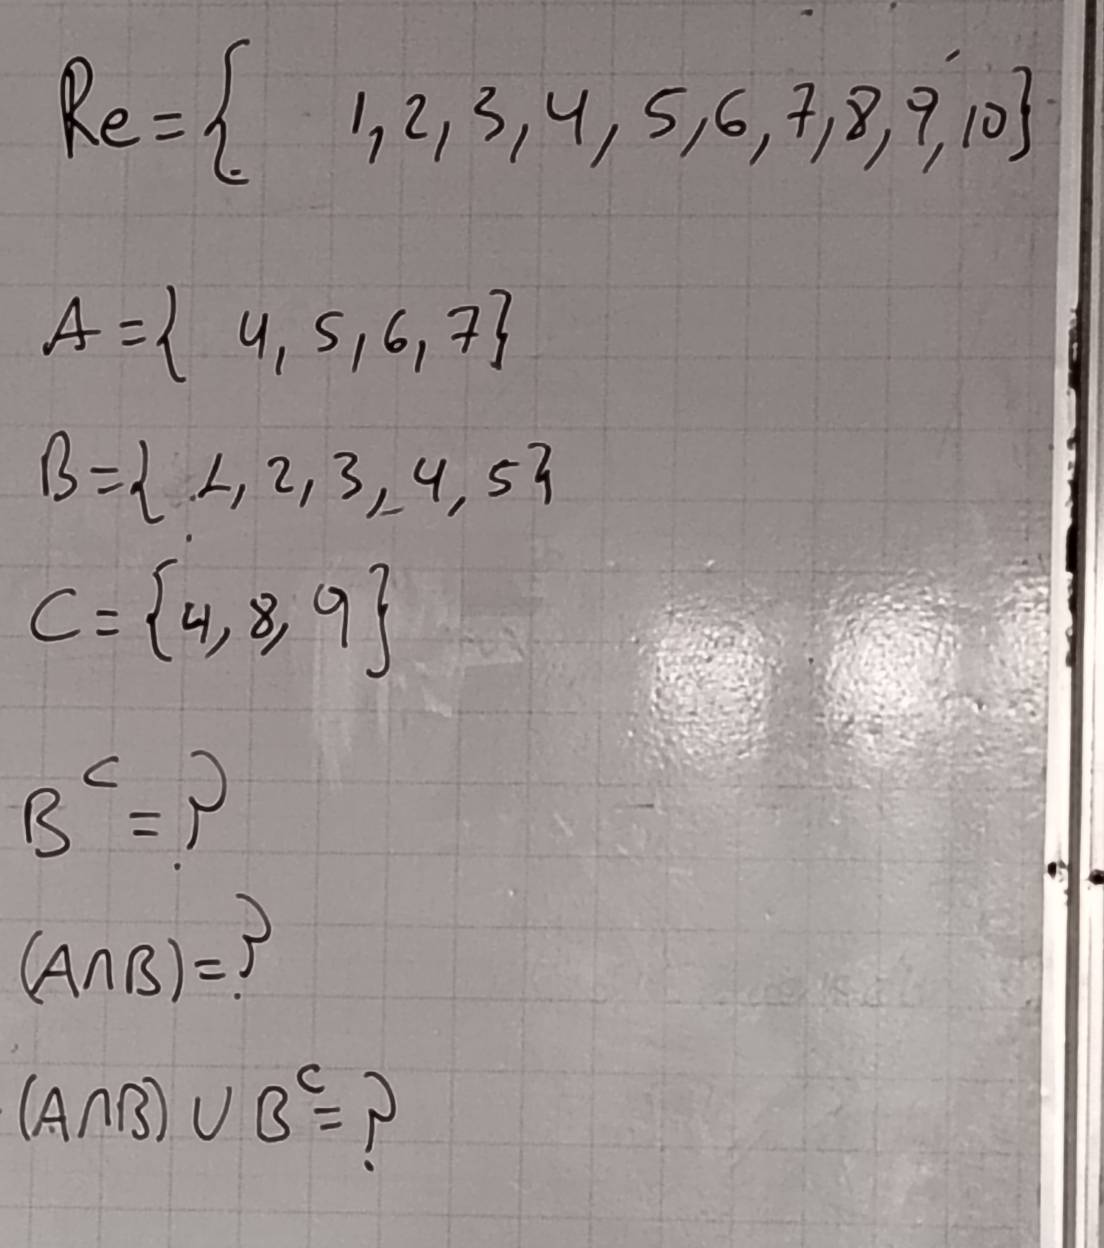 Re={ 1,2,3,4,5,6,7,8,9,10}
A={ 4,5,6,7}
B={ 1,2,3,4,5}
C={4,8,9}
B^c=?
(A∩B)=?
(A∩B)∪B^c=?